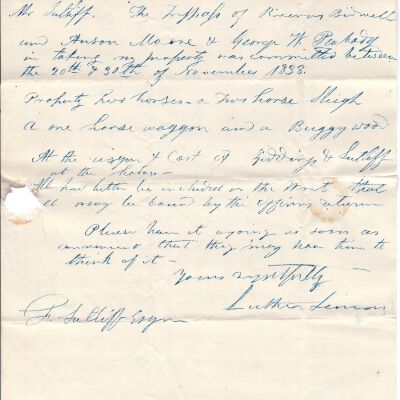 Mr Sutliff. The Trespass of Rosevus Bidwell
and Anson Moore & George W. Peabody
in taking my property was committed between
the 20th & 30th of November 1838.
Property Two horses – a Two horse Sleigh
A one horse waggon and a Buggy wood
At the &  of Giddings & Sutliff
at the
All had better be included in the Writ that
all may be bound by the officers return
Please have it agoing as soon as
convenient that they may have time to
think of it –
Yours respectfully
Luther
F. Sutliff Esqr